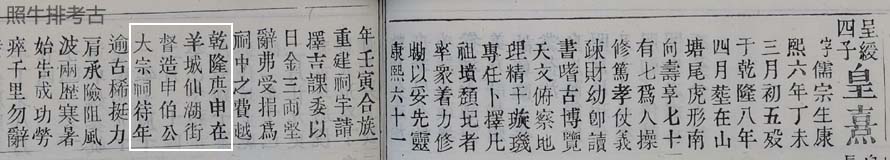 照牛排考古
呈綬
四子
皇熹
字儒宗生康
熙六年丁未
三月初五歿
于乾隆八年
四月塟在山
塘尾虎形南
向壽享七十
有七爲人操
修篤孝仗義
疎財幼卽讀
書喈古博覽
天文俯察地
理精干璇璣
專任卜擇凡
祖墳頽圮者
率衆着力修
拗以妥先靈
康熙六十一
年壬寅合族
重建祠宇請
擇吉課委以
日金三兩堅
辭弗受捐爲
祠中之費越
乾隆庚申在
羊城仙湖街
督造申伯公
大宗祠待年
逾古稀挺力
肩承險阻風
波兩歷寒暑
始告成功勞
瘁千里勿辭